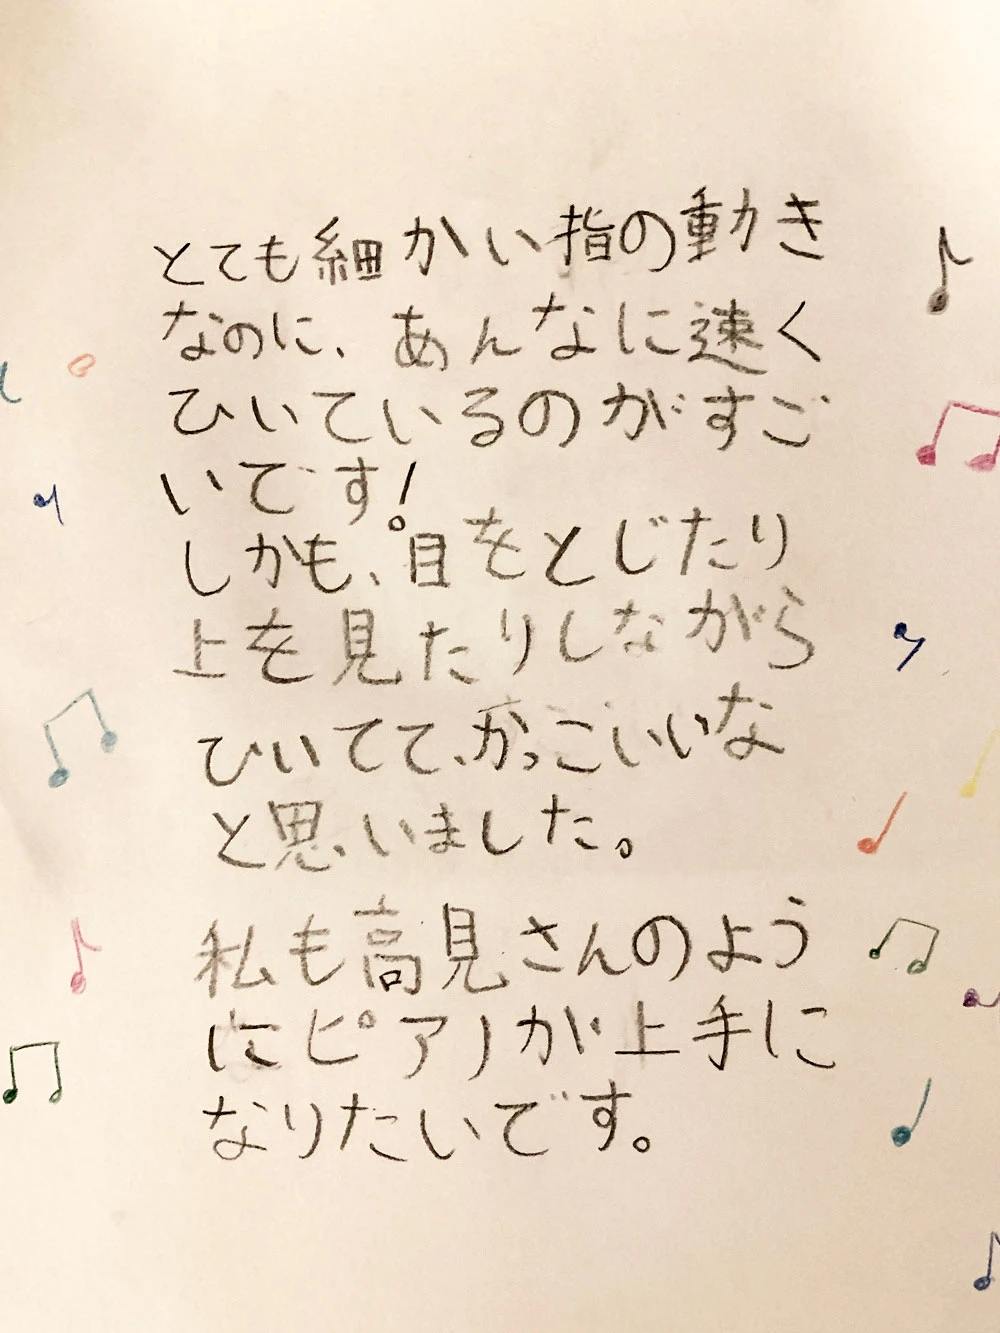 とても細かい指の動き
なのに、あんなに速く
ひいているのがすご
いです！
しかも、目をとじたり
上を見たりしながら
ひいてて、かっこいいな
と思いました。
私も高見さんのよう
にピアノが上手に
なりたいです。